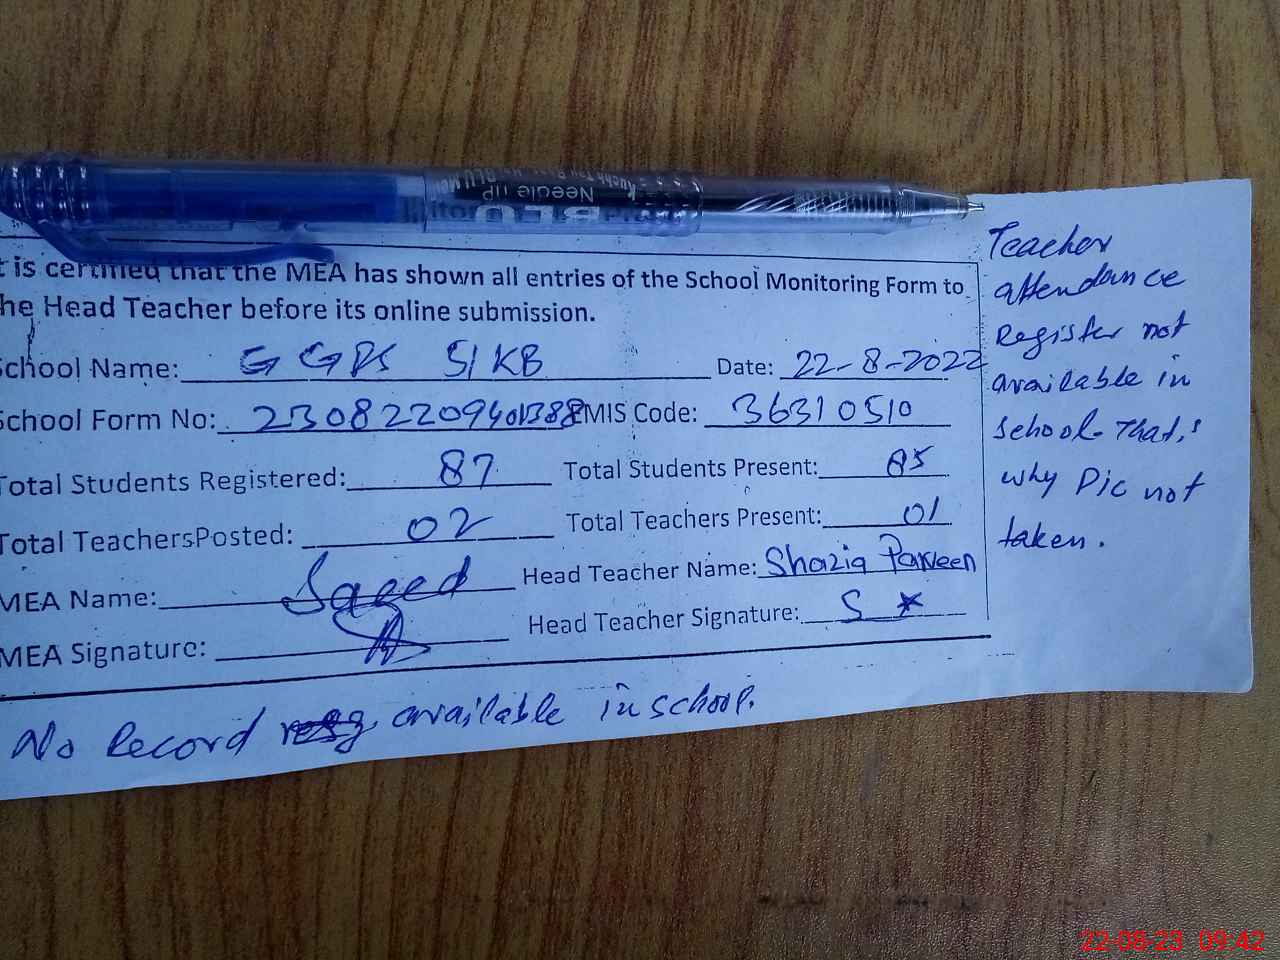 Needle TIP
t is certified that the MEA has shown all entries of the School Monitoring Form to
he Head Teacher before its online submission.
School Name: GGPS 51KB Date: 22-8-2022
School Form No: EMIS Code: 36310510
Total Students Registered: 87 Total Students Present: 85
Total TeachersPosted: 02 Total Teachers Present: 01
MEA Name: Saeed Head Teacher Name: Shazia Parveen
MEA Signature: Head Teacher Signature: S
No Record available in school.
Teacher
attendance
Register not
available in
school. That,s
why Pic not
taken.
22-08-23 09:42